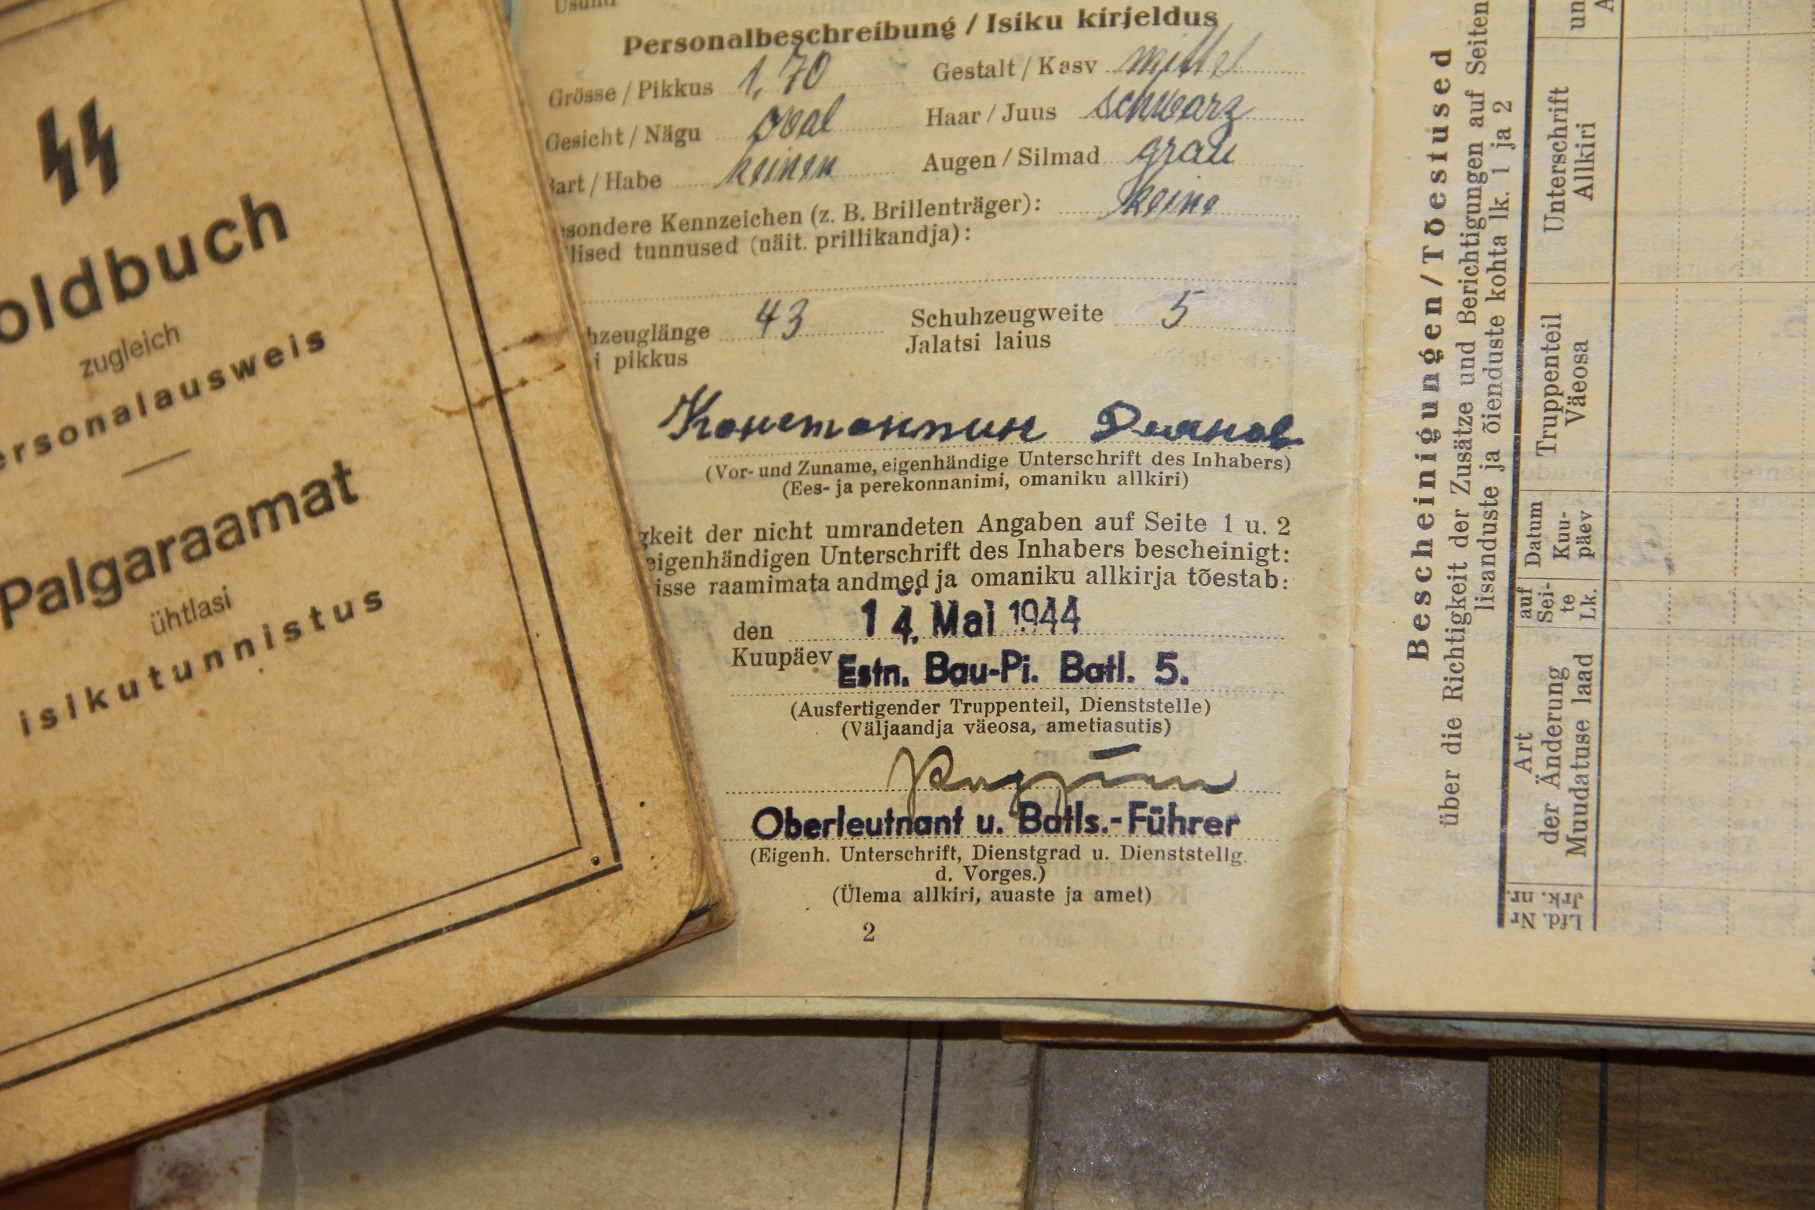 oldbuch
zugleich
ersonalausweis
Palgaraamat
ühtlasi
isikutunnistus
Personalbeschreibung / Isiku kirjeldus
Grösse / Pikkus 1,70 Gestalt / Kasv mittel
Gesicht / Nägu oval Haar / Juus schwarz
art / Habe keinen Augen / Silmad grau
sondere Kennzeichen (z. B. Brillenträger): keine
lised tunnused (näit. prillikandja):
hzeuglänge 43 Schuhzeugweite 5
i pikkus Jalatsi laius
Константин
(Vor- und Zuname, eigenhändige Unterschrift des Inhabers)
(Ees- ja perekonnanimi, omaniku allkiri)
gkeit der nicht umrandeten Angaben auf Seite 1 u. 2
eigenhändigen Unterschrift des Inhabers bescheinigt:
isse raamimata andmed ja omaniku allkirja tõestab:
den 14. Mai 1944
Kuupäev Estn. Bau-Pi. Batl. 5.
(Ausfertigender Truppenteil, Dienststelle)
(Väljaandja väeosa, ametiasutis)
Oberleutnant u. Batls.-Führer
(Eigenh. Unterschrift, Dienstgrad u. Dienststellg.
d. Vorges.)
(Ülema allkiri, auaste ja amet)
2
Bescheinigungen / Tõestused
über die Richtigkeit der Zusätze und Berichtigungen auf Seiten
lisanduste ja õienduste kohta lk. 1 ja 2
Lfd. Nr
Jrk. nr.
Art
der Änderung
Muudatuse laad
auf
Sei-
te
Lk.
Datum
Kuu-
päev
Truppenteil
Väeosa
Unterschrift
Allkiri
un